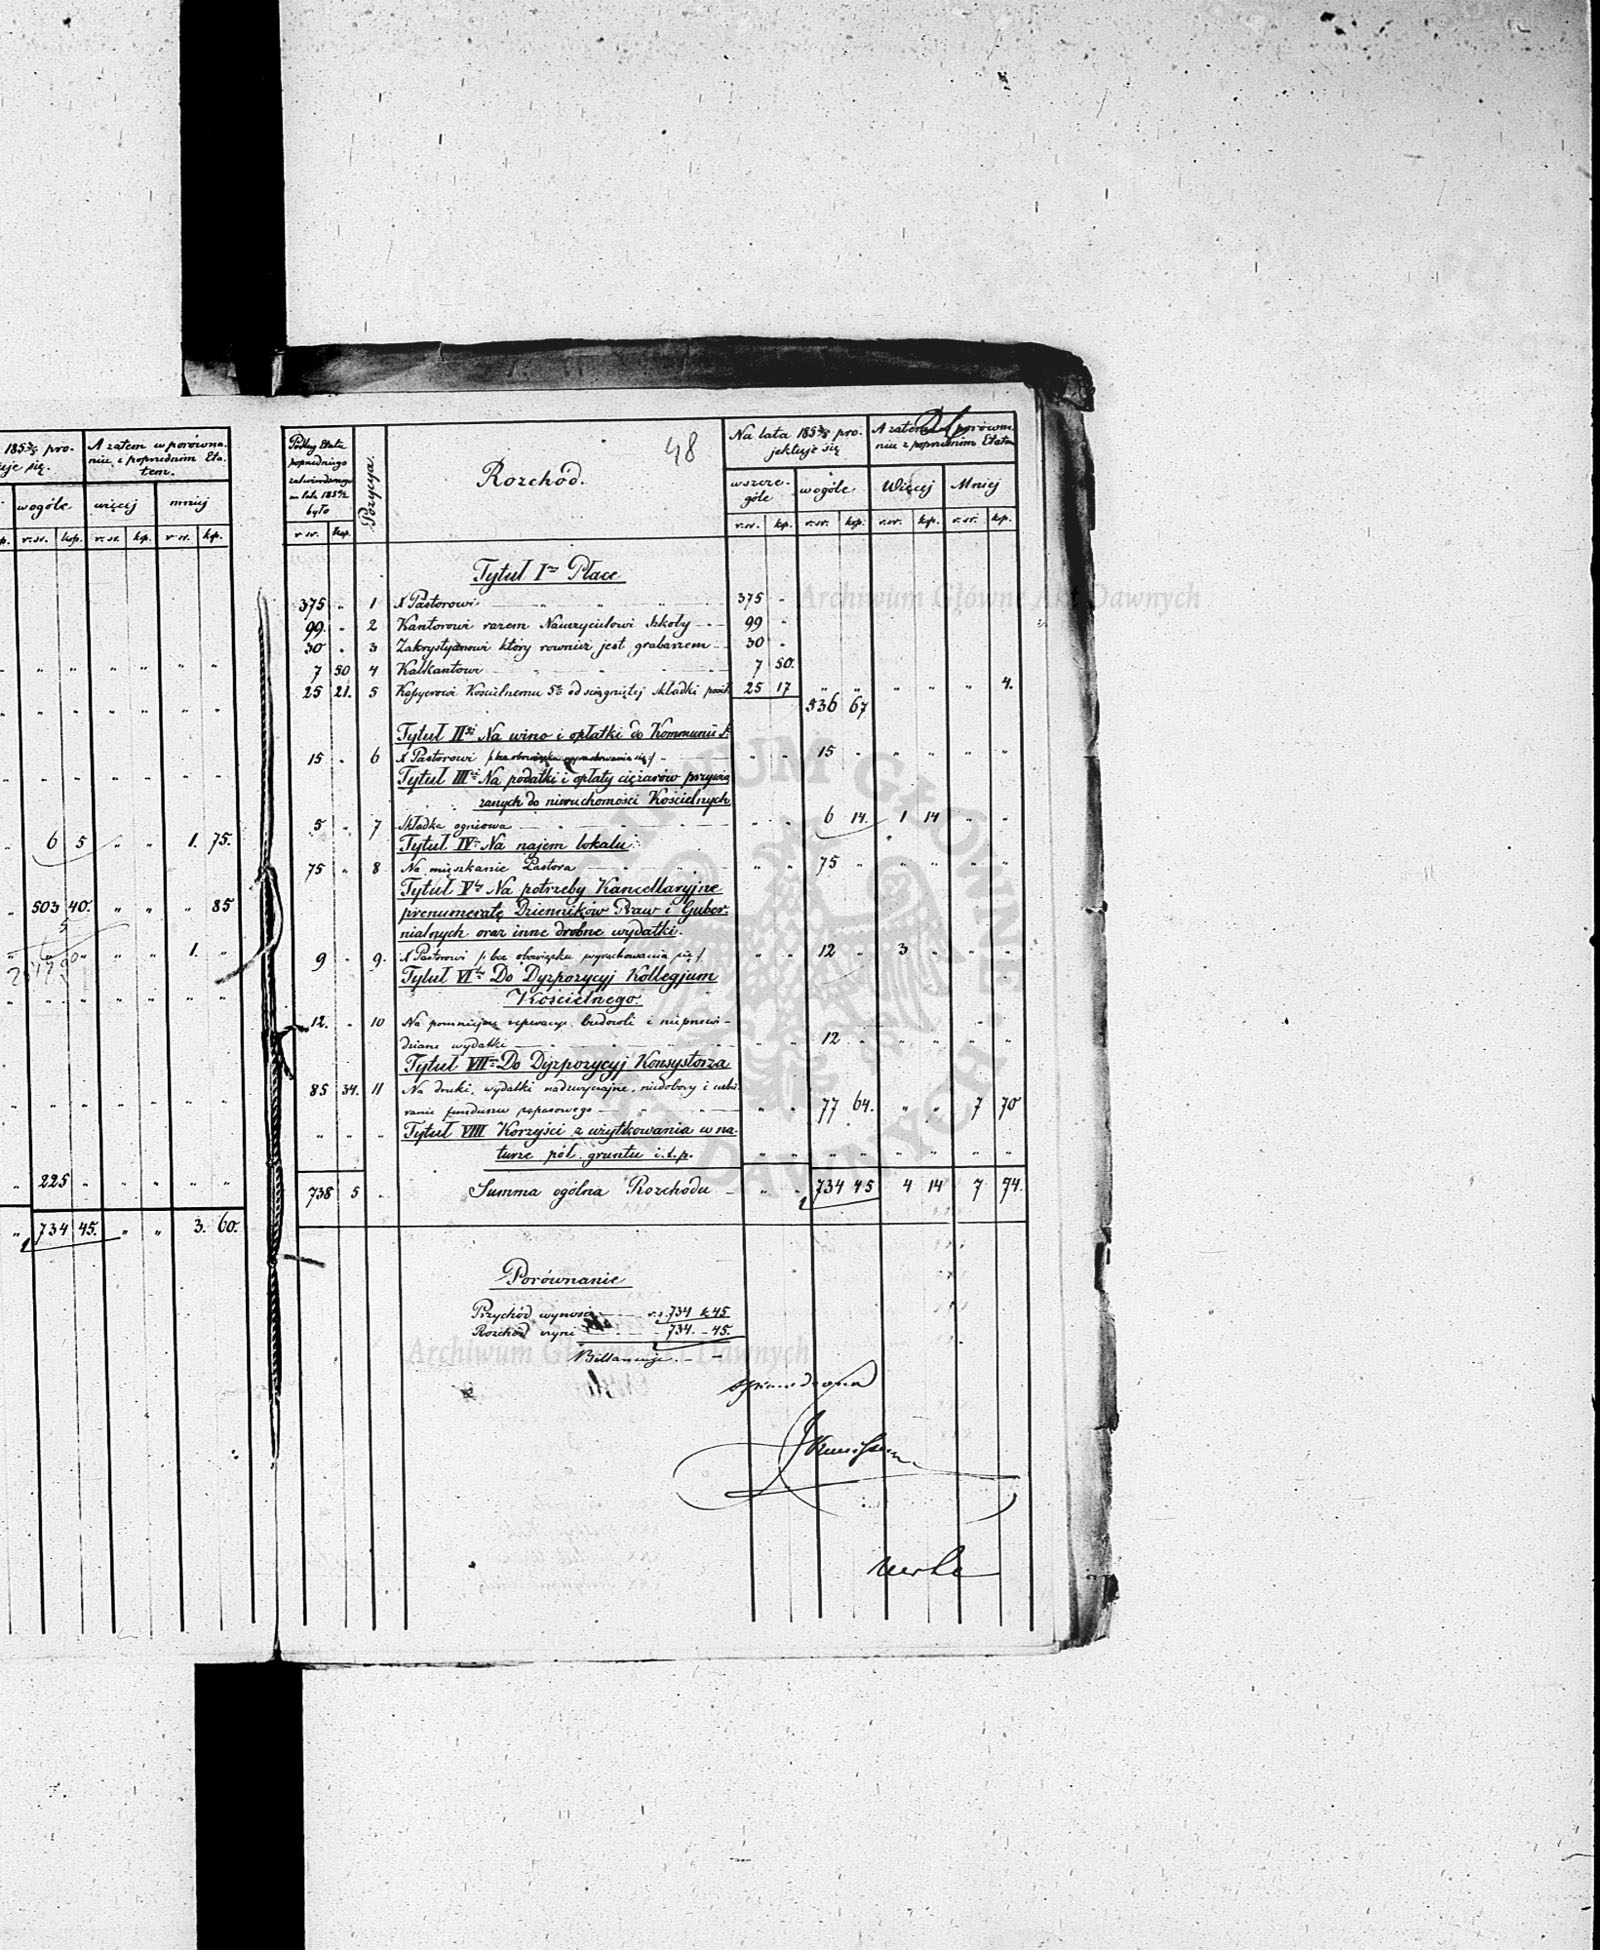 185 5/8 pro-
uje się.
A zatem w porówna-
niu z poprzednim Eta-
tem.
wogóle więcej mniej
kp. r. sr. kop. r. sr. kp. r. sr. kp.
6 5 " " 1. 75.
503 40. " " " 85
5
" " 1. "
225 " " " " "
734 45. " " 3. 60.
48
Podług Etatu
poprzedniego
zatwierdzonego
na lata 185
było
r. sr. kop.
Pozycya.
Rozchód.
Na lata 185 5/8 pro-
jektuje się
wszcze-
góle
wogóle
r. sr. kp. r. sr. kp.
A zatem w porówna-
niu z poprzednim Etatem
Więcej Mniej
r. sr. kp. r. sr. kp.
Tytuł I Płace
375 " 1 X Pastorowi 375 "
99 " 2 Kantorowi razem Nauczycielowi Szkoły 99 "
30 " 3 Zakrystyanowi który rownież jest grabarzem 30 "
7 50 4 Kalkantowi 7 50.
25 21. 5 Kassyerowi Kościelnemu 5% od ściągniętej Składki 25 17 " " " " " 4.
536 67
Tytuł II Na wino i opłatki do Kommunii S.
15 " 6 X Pastorowi /: bez obowiązku wyrachowania się :/ " " 15 " " " " "
Tytuł III Na podatki i opłaty ciężarów przywią
zanych do nieruchomości Kościelnych
5 " 7 Składka ogniowa " " 6 14. 1 14 " "
Tytuł IV Na najem lokalu:
75 " 8 Na mięszkanie Pastora " " 75 " " " " "
Tytuł V Na potrzeby Kancellaryjne
prenumeratę Dzienników Praw i Guber-
nialnych oraz inne drobne wydatki.
9 " 9. X Pastorowi /: bez obowiązku wyrachowania się :/ " " 12 " 3 " " "
Tytuł VI Do Dyzpozycyj Kollegjum
Kościelnego.
12. " 10 Na pomniejsze reperacye budowli i nieprzewi-
dziane wydatki " " 12 " " " " "
Tytuł VII Do Dyzpozycyj Konsystorza
85 34. 11 Na druki, wydatki nadzwyczajne, niedobory i uzbi-
rania funduszu zapasowego " " 77 64. " " 7 70
Tytuł VIII Korzyści z użytkowania w na-
turze pól, gruntu i.t.p.
738 5 " Summa ogólna Rozchodu " " 734 45 4 14 7 74.
Porównanie
Przychód wynosi r.s. 734 k 45
Rozchód czyni 734. - 45.
Billansuje. - -